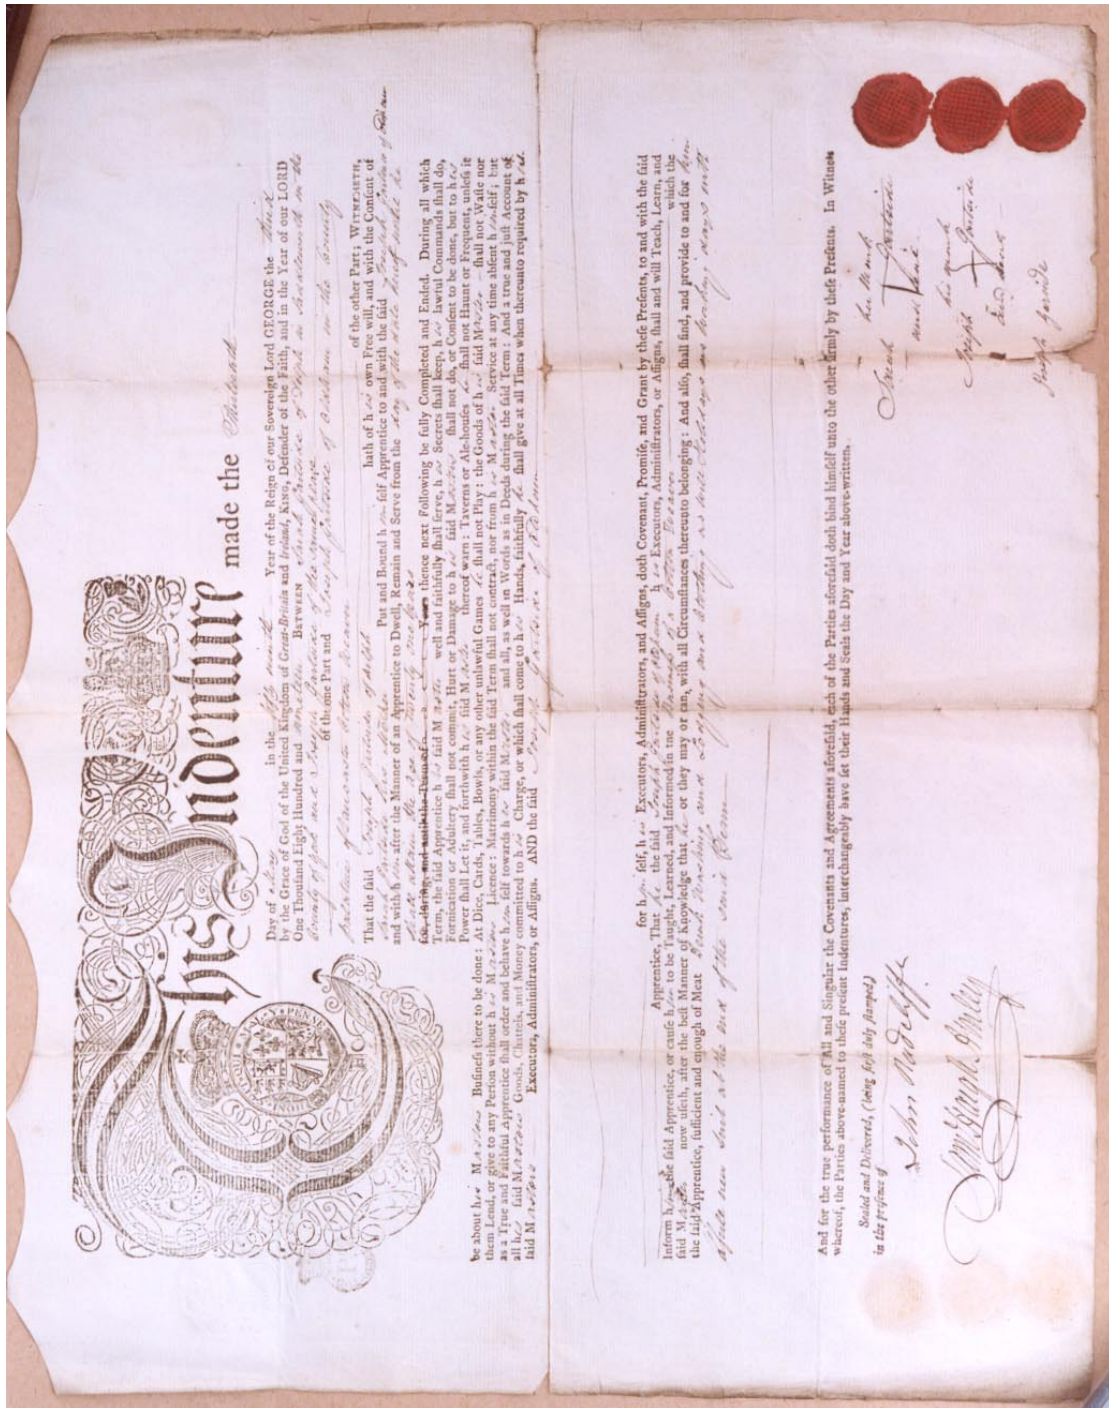 This Indenture made the Thirteenth
Day of May in the fifty ninth Year of the Reign of our Sovereign Lord GEORGE the third
by the Grace of God of the United Kingdom of Great-Britain and Ireland, KING, Defender of the Faith, and in the Year of our LORD
One Thousand Eight Hundred and nineteen BETWEEN Sarah Gartside of in the
County of York and Joseph Gartside of the same place
of the one Part and Joseph Gartside of Oldham in the County
palatine of Lancaster Cotton Weaver of the other Part; WITNESSETH,
That the said Joseph Gartside of hath of his own Free will, and with the Consent of
Sarah Gartside his mother Put and Bound himself Apprentice to and with the said Joseph Gartside of Oldham
and with him after the Manner of an Apprentice to Dwell, Remain and Serve from the day of the date hereof until he
shall attain the age of twenty one years
for, during, and until the Term of Years thence next Following be fully Completed and Ended. During all which
Term, the said Apprentice his said Master well and faithfully shall serve, his Secrets shall keep, his lawful Commands shall do,
Fornication or Adultery shall not commit, Hurt or Damage to his said Masters shall not do, or Consent to be done, but to his
Power shall Let it, and forthwith his said Master thereof warn: Taverns or Ale-houses he shall not Haunt or Frequent, unless it
be about his Masters Business there to be done: At Dice, Cards, Tables, Bowls, or any other unlawful Games he shall not Play: the Goods of his said Master shall not Waste nor
them Lend, or give to any Person without his Masters Licence: Matrimony within the said Term shall not contract, nor from his Master Service at any time absent himself; but
as a True and Faithful Apprentice shall order and behave himself towards his said Master and all, as well in Words as in Deeds during the said Term: And a true and just Account of
all his said Masters Goods, Chattels, and Money committed to his Charge, or which shall come to his Hands, faithfully he shall give at all Times when thereunto required by his
said Master Executors, Administrators, or Assigns. AND the said Joseph Gartside of Oldham
for himself, his Executors, Administrators, and Assigns, doth Covenant, Promise, and Grant by these Presents, to and with the said
Apprentice, That he the said Joseph Gartside of Oldham his Executors, Administrators, or Assigns, shall and will Teach, Learn, and
Inform him the said Apprentice, or cause him to be Taught, Learned, and Informed in the Business of a Cotton Weaver which the
said Master now useth, after the best Manner of Knowledge that he or they may or can, with all Circumstances thereunto belonging: And also, shall find, and provide to and for him
the said Apprentice, sufficient and enough of Meat Drink Washing and Lodging and Clothing as well Holidays as working days with
a new suit at the end of the said Term
And for the true performance of All and Singular the Covenants and Agreements aforesaid, each of the Parties aforesaid doth bind himself unto the other firmly by these Presents. In Witness
whereof, the Parties above-named to these present Indentures, Interchangeably have set their Hands and Seals the Day and Year above-written.
Sealed and Delivered, (being first duly stamped)
in the presence of
John Radcliffe
Sarah her Mark Gartside
Joseph his mark Gartside
Joseph